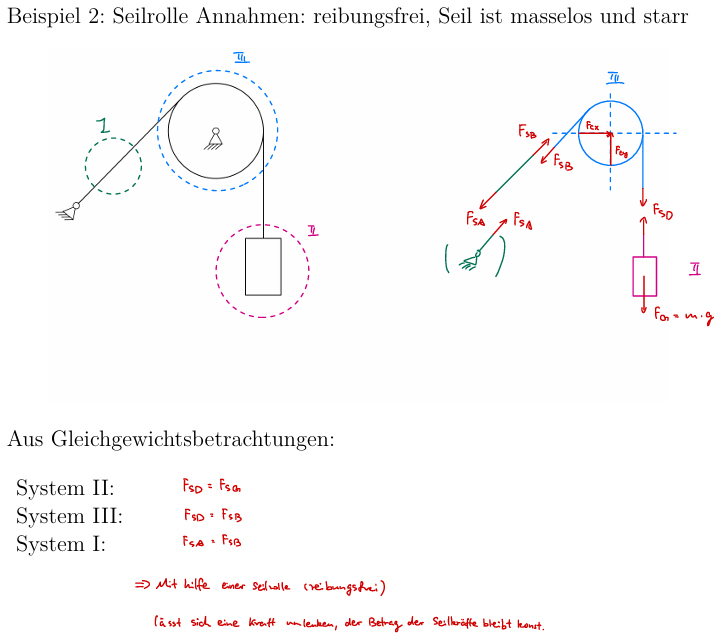 Beispiel 2: Seilrolle Annahmen: reibungsfrei, Seil ist masselos und starr
III
I
II
III
F_SB
F_Cx
F_Cy
F_SB
F_SA
F_SA
F_SD
II
F_G = m·g
Aus Gleichgewichtsbetrachtungen:
System II: F_SD = F_SG
System III: F_SD = F_SB
System I: F_SA = F_SB
=> Mit hilfe einer Seilrolle (reibungsfrei)
lässt sich eine Kraft umlenken, der Betrag der Seilkräfte bleibt konst.